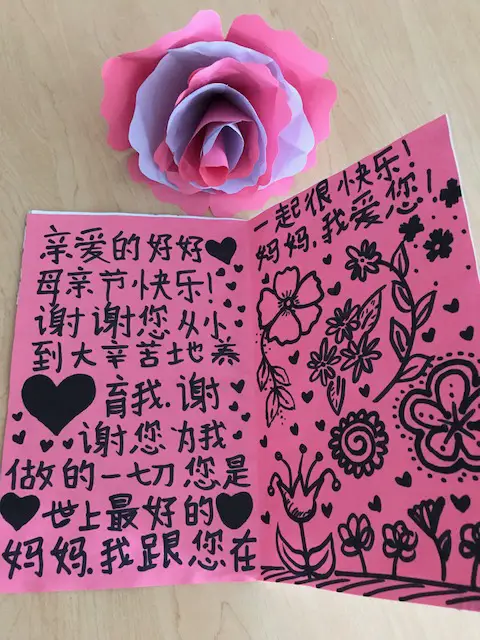 亲爱的好好
母亲节快乐!
谢谢您从小
到大辛苦地养
育我.谢
谢您为我
做的一切您是
世上最好的
妈妈.我跟您在
一起很快乐!
妈妈.我爱您!